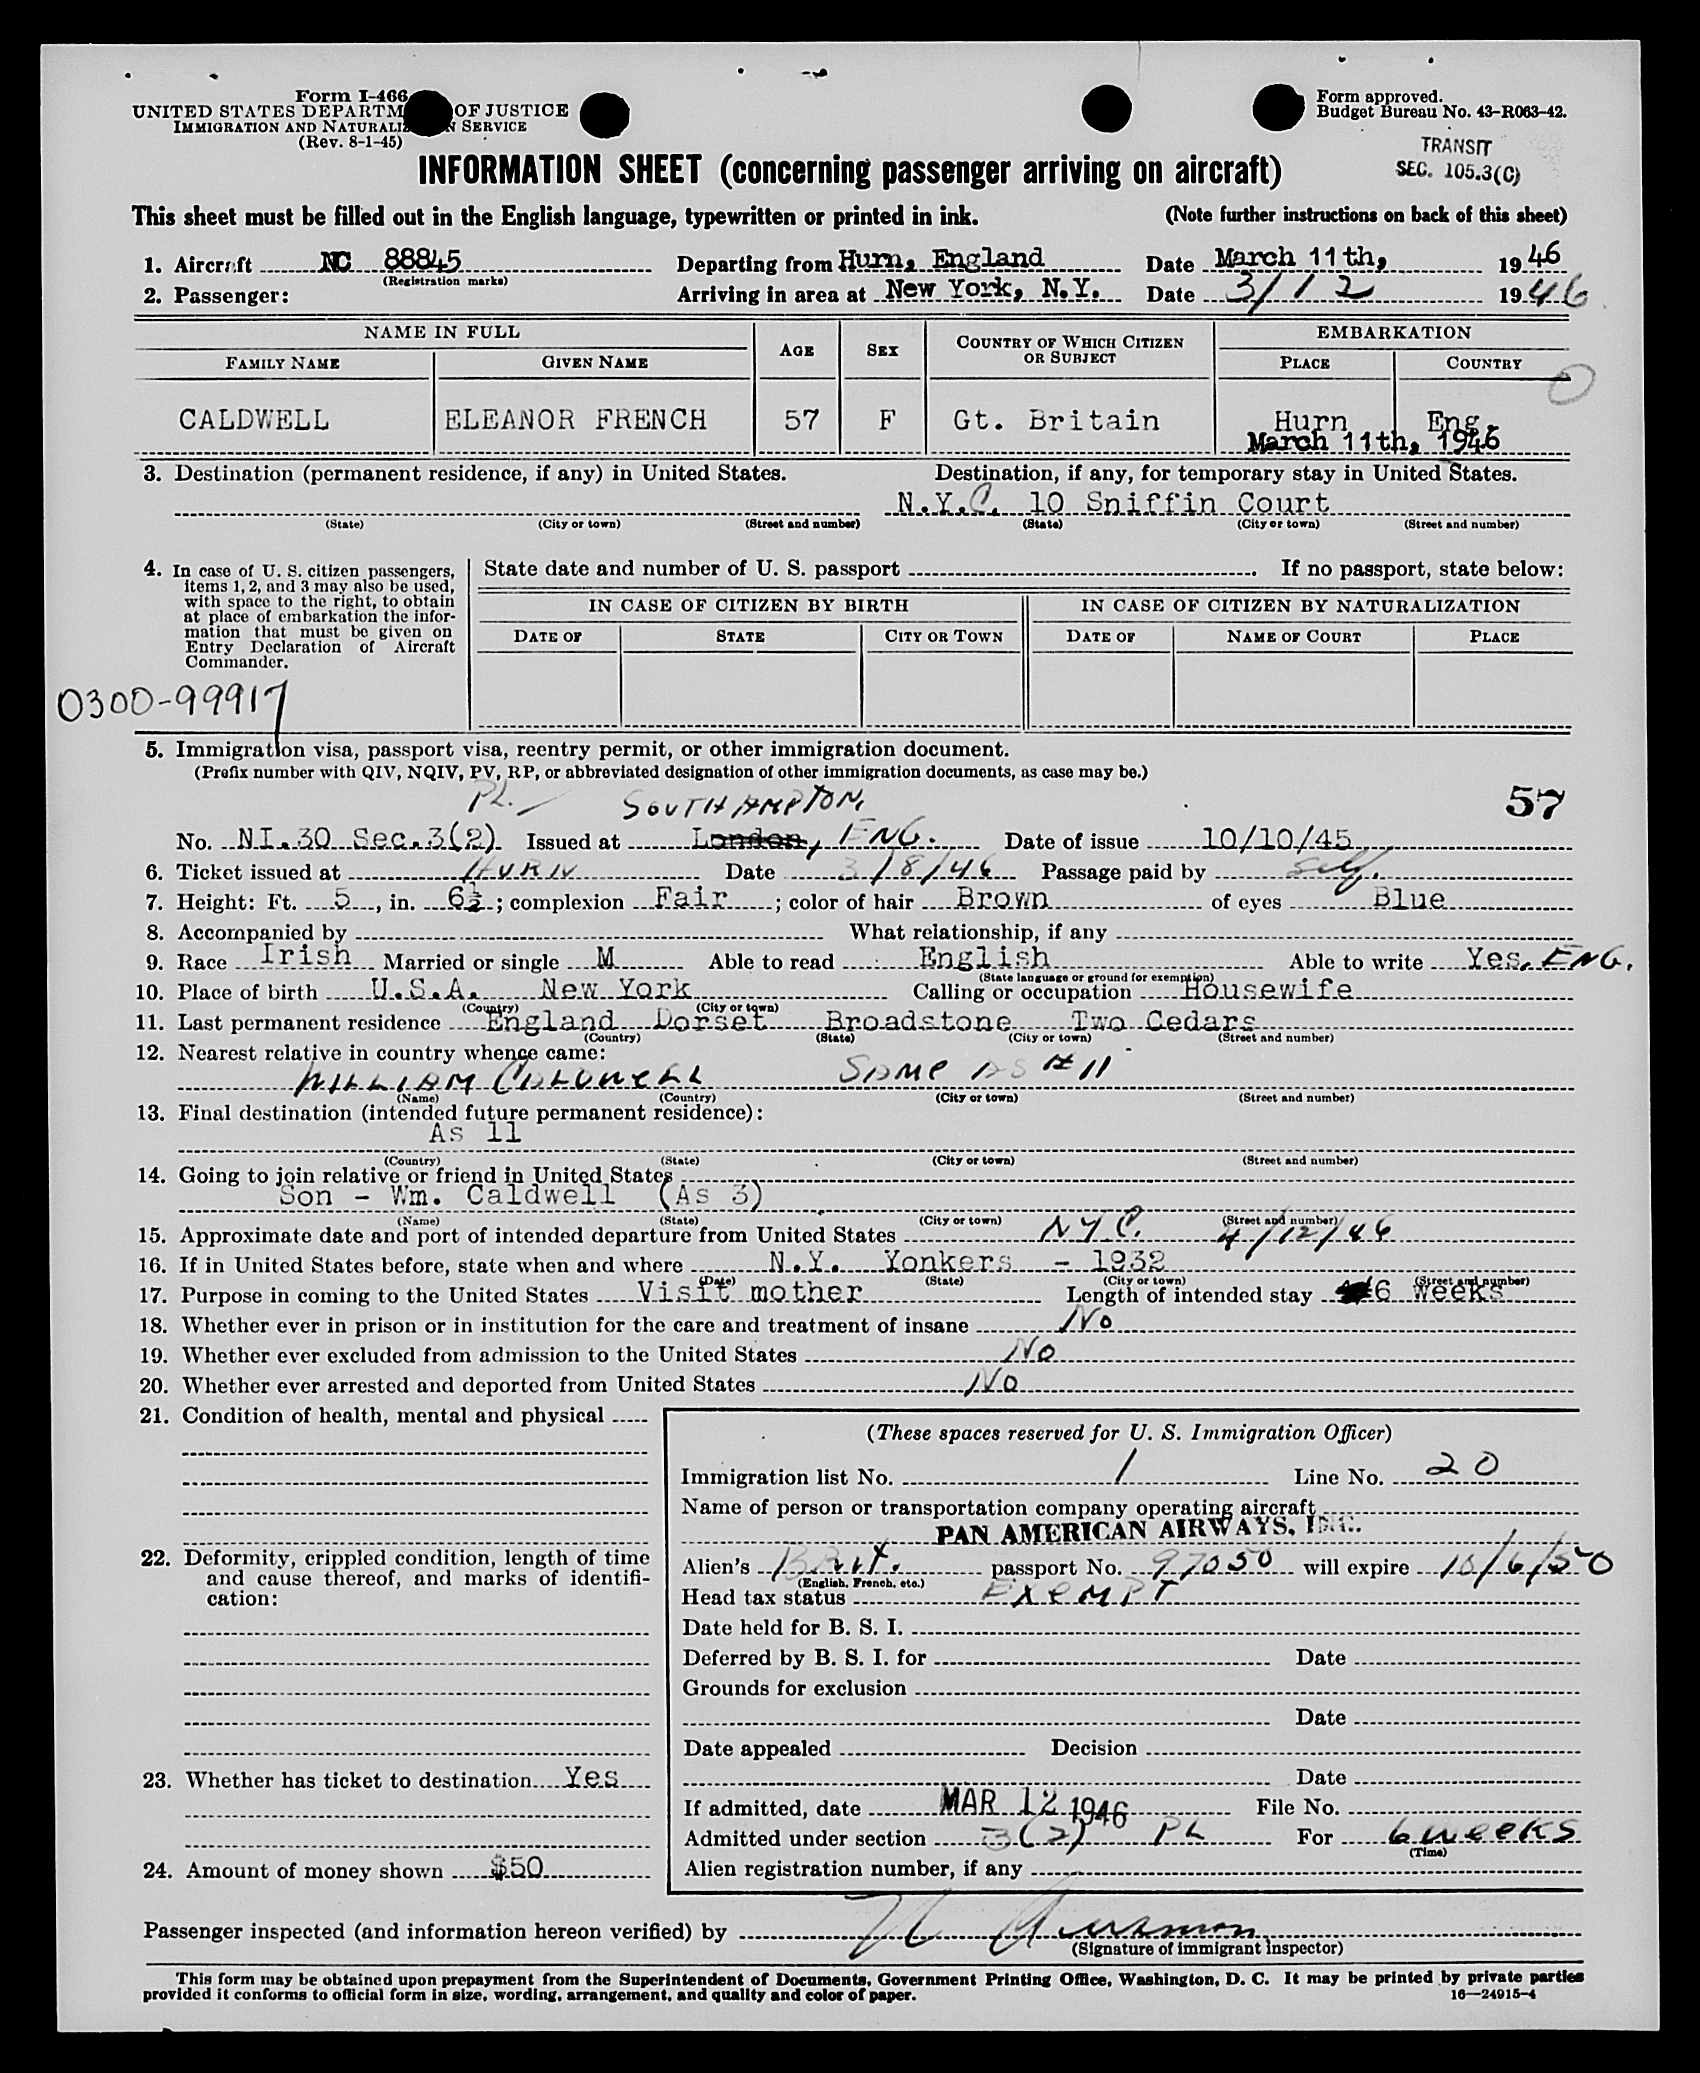 Form I-466
UNITED STATES DEPARTM OF JUSTICE
IMMIGRATION AND NATURALIZ N SERVICE
(Rev. 8-1-45)
Form approved.
Budget Bureau No. 43-R063-42.
TRANSIT
SEC. 105.3(C)
INFORMATION SHEET (concerning passenger arriving on aircraft)
This sheet must be filled out in the English language, typewritten or printed in ink. (Note further instructions on back of this sheet)
1. Aircraft NC 88845 Departing from Hurn, England Date March 11th, 1946
(Registration marks)
2. Passenger: Arriving in area at New York, N.Y. Date 3/12 1946
NAME IN FULL AGE SEX COUNTRY OF WHICH CITIZEN OR SUBJECT EMBARKATION
FAMILY NAME GIVEN NAME PLACE COUNTRY
0
CALDWELL ELEANOR FRENCH 57 F Gt. Britain Hurn Eng.
March 11th, 1946
3. Destination (permanent residence, if any) in United States. Destination, if any, for temporary stay in United States.
N.Y.C. 10 Sniffin Court
(State) (City or town) (Street and number) (State) (City or town) (Street and number)
4. In case of U. S. citizen passengers, items 1, 2, and 3 may also be used, with space to the right, to obtain at place of embarkation the information that must be given on Entry Declaration of Aircraft Commander.
State date and number of U. S. passport . If no passport, state below:
IN CASE OF CITIZEN BY BIRTH IN CASE OF CITIZEN BY NATURALIZATION
DATE OF STATE CITY OR TOWN DATE OF NAME OF COURT PLACE
0300-99917
5. Immigration visa, passport visa, reentry permit, or other immigration document.
(Prefix number with QIV, NQIV, PV, RP, or abbreviated designation of other immigration documents, as case may be.)
PL. SOUTHAMPTON, 57
No. NI.30 Sec.3(2) Issued at London, ENG. Date of issue 10/10/45
6. Ticket issued at HURN Date 3/8/46 Passage paid by Self.
7. Height: Ft. 5, in. 6½; complexion Fair; color of hair Brown of eyes Blue
8. Accompanied by What relationship, if any
9. Race Irish Married or single M Able to read English Able to write Yes, ENG.
(State language or ground for exemption)
10. Place of birth U.S.A. New York Calling or occupation Housewife
(Country) (City or town)
11. Last permanent residence England Dorset Broadstone Two Cedars
(Country) (State) (City or town) (Street and number)
12. Nearest relative in country whence came:
WILLIAM CALDWELL SAME AS #11
(Name) (Country) (City or town) (Street and number)
13. Final destination (intended future permanent residence):
As 11
(Country) (State) (City or town) (Street and number)
14. Going to join relative or friend in United States
Son - Wm. Caldwell (As 3)
(Name) (State) (City or town) (Street and number)
15. Approximate date and port of intended departure from United States NYC. 4/12/46
16. If in United States before, state when and where N.Y. Yonkers - 1932
(Date) (State) (City or town) (Street and number)
17. Purpose in coming to the United States Visit mother Length of intended stay 6 weeks
18. Whether ever in prison or in institution for the care and treatment of insane No
19. Whether ever excluded from admission to the United States No
20. Whether ever arrested and deported from United States No
21. Condition of health, mental and physical
22. Deformity, crippled condition, length of time and cause thereof, and marks of identification:
23. Whether has ticket to destination Yes
24. Amount of money shown $50
(These spaces reserved for U. S. Immigration Officer)
Immigration list No. 1 Line No. 20
Name of person or transportation company operating aircraft
PAN AMERICAN AIRWAYS, INC.
Alien's Brit. passport No. 97050 will expire 10/6/50
(English, French, etc.)
Head tax status EXEMPT
Date held for B. S. I.
Deferred by B. S. I. for Date
Grounds for exclusion
Date
Date appealed Decision
Date
If admitted, date MAR 12 1946 File No.
Admitted under section 3(2) PL For 6 weeks
(Time)
Alien registration number, if any
Passenger inspected (and information hereon verified) by
(Signature of immigrant inspector)
This form may be obtained upon prepayment from the Superintendent of Documents, Government Printing Office, Washington, D. C. It may be printed by private parties
provided it conforms to official form in size, wording, arrangement, and quality and color of paper. 16—24915-4